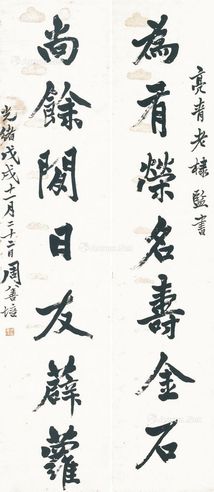 亮青老棣監書
為有榮名壽金石
尚餘閒日友薜蘿
光緒戊戌十一月二十二日周善培